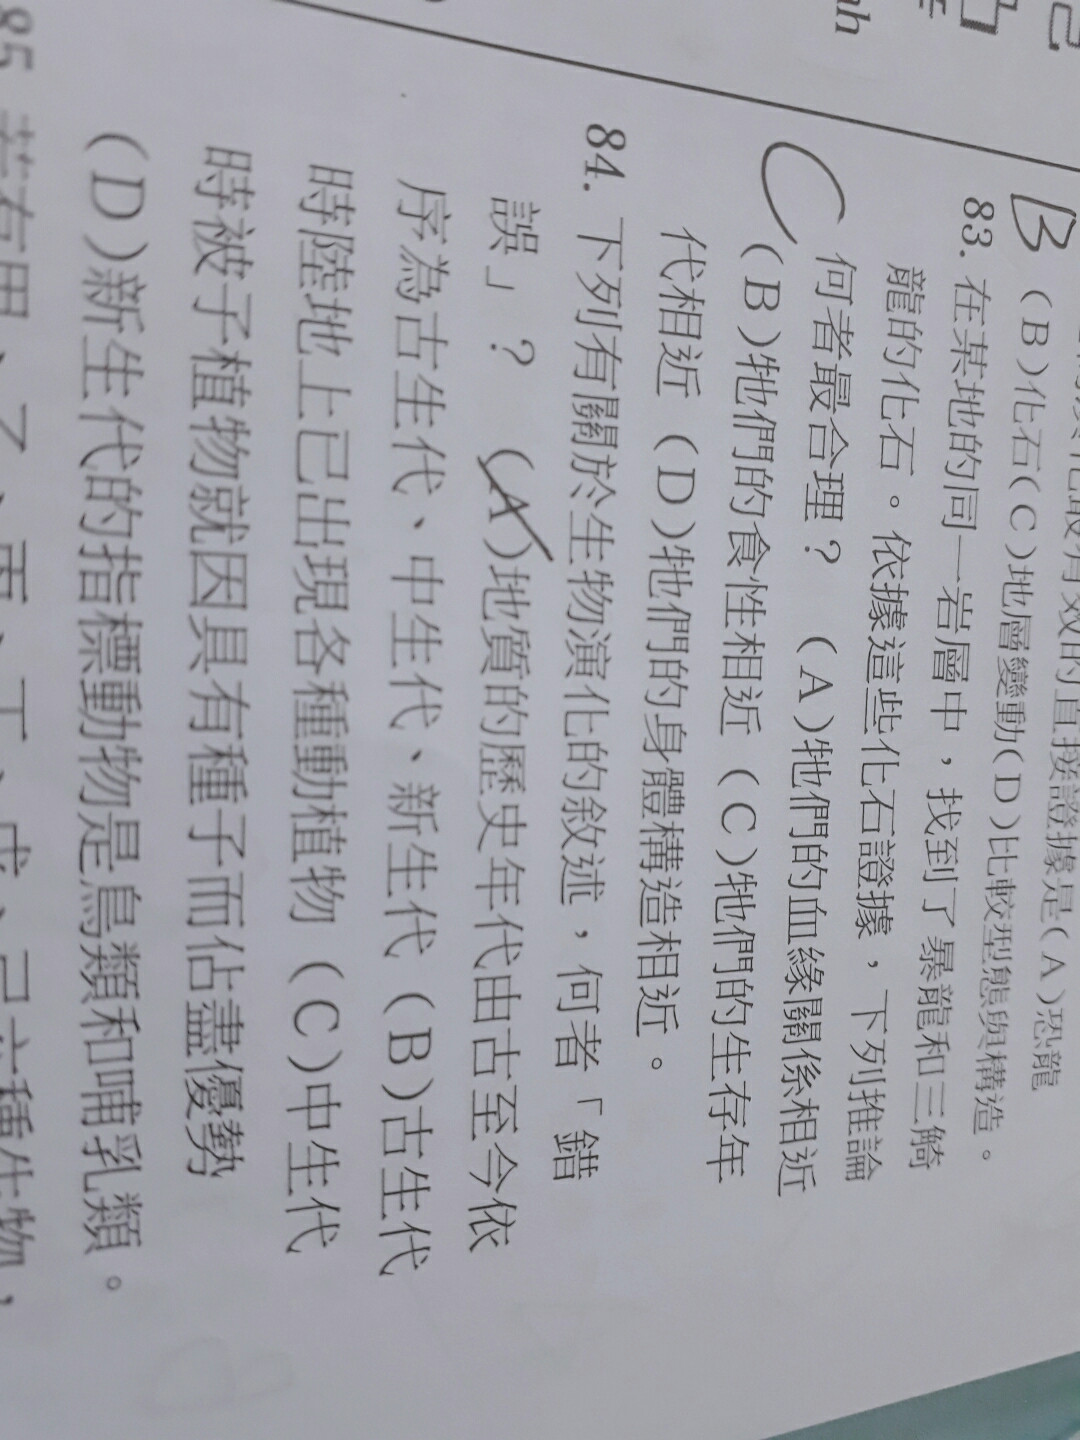 (B)化石(C)地層變動(D)比較型態與構造。
B
83. 在某地的同一岩層中，找到了暴龍和三觭
龍的化石。依據這些化石證據，下列推論
何者最合理？ (A)牠們的血緣關係相近
C
(B)牠們的食性相近 (C)牠們的生存年
代相近 (D)牠們的身體構造相近。
84. 下列有關於生物演化的敘述，何者「錯
誤」？ (A)地質的歷史年代由古至今依
序為古生代、中生代、新生代 (B)古生代
時陸地上已出現各種動植物 (C)中生代
時被子植物就因具有種子而佔盡優勢
(D)新生代的指標動物是鳥類和哺乳類。